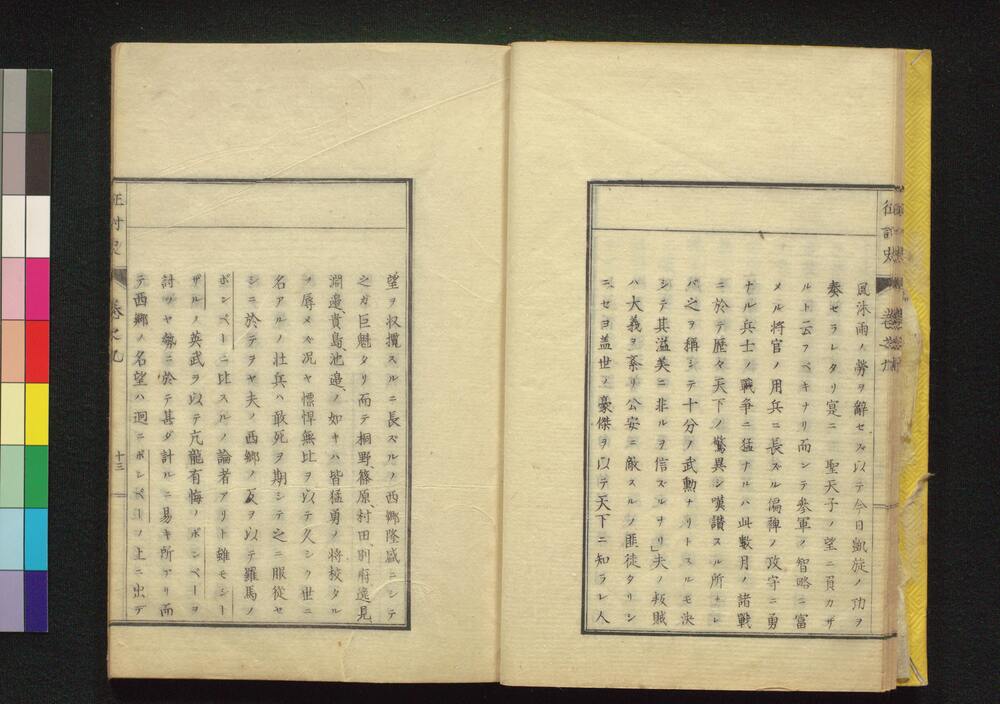 征討史
風沐雨ノ労ヲ辞セズ以テ今日凱旋ノ功ヲ
奏セラレタリ寔ニ　聖天子ノ望ニ負カザ
ルト云フベキナリ而シテ参軍ノ智略ニ富
メル将官ノ用兵ニ長ズル偏裨ノ攻守ニ勇
ナル兵士ノ戦争ニ猛ナルハ此数月ノ諸戦
ニ於テ歴々天下ノ驚異シ嘆讃スル所ナレ
バ之ヲ稱シテ十分ノ武勲ナリトスルモ決
シテ其溢美ニ非ルヲ信ズルナリ」夫ノ叛賊
ハ大義ヲ紊リ公安ニ敵スルノ匪徒タリシ
ニセヨ盖世ノ豪傑ヲ以テ天下ニ知ラレ人
望ヲ収攬スルニ長ズルノ西郷隆盛ニシテ
之ガ巨魁タリ而テ桐野、篠原、村田、別府、逸見、
淵邉、貴島、池邉、ノ如キハ皆猛勇ノ将校タル
ノ辱メズ况ヤ慓悍無比ヲ以テ久シク世ニ
名アルノ壮兵ハ敢死ヲ期シテ之ニ服従セ
シニ於テヲヤ夫ノ西郷ノ反ヲ以テ羅馬ノ
ボンペーニ比スルノ論者アリト雖モシー
ザルノ英武ヲ以テ亢龍有悔ノボンペーヲ
討ツヤ勢ニ於テ甚ダ計ルニ易キ所アリ而
テ西郷ノ名望ハ迥ニボンペーノ上ニ出デ
征討史
巻之九
十三